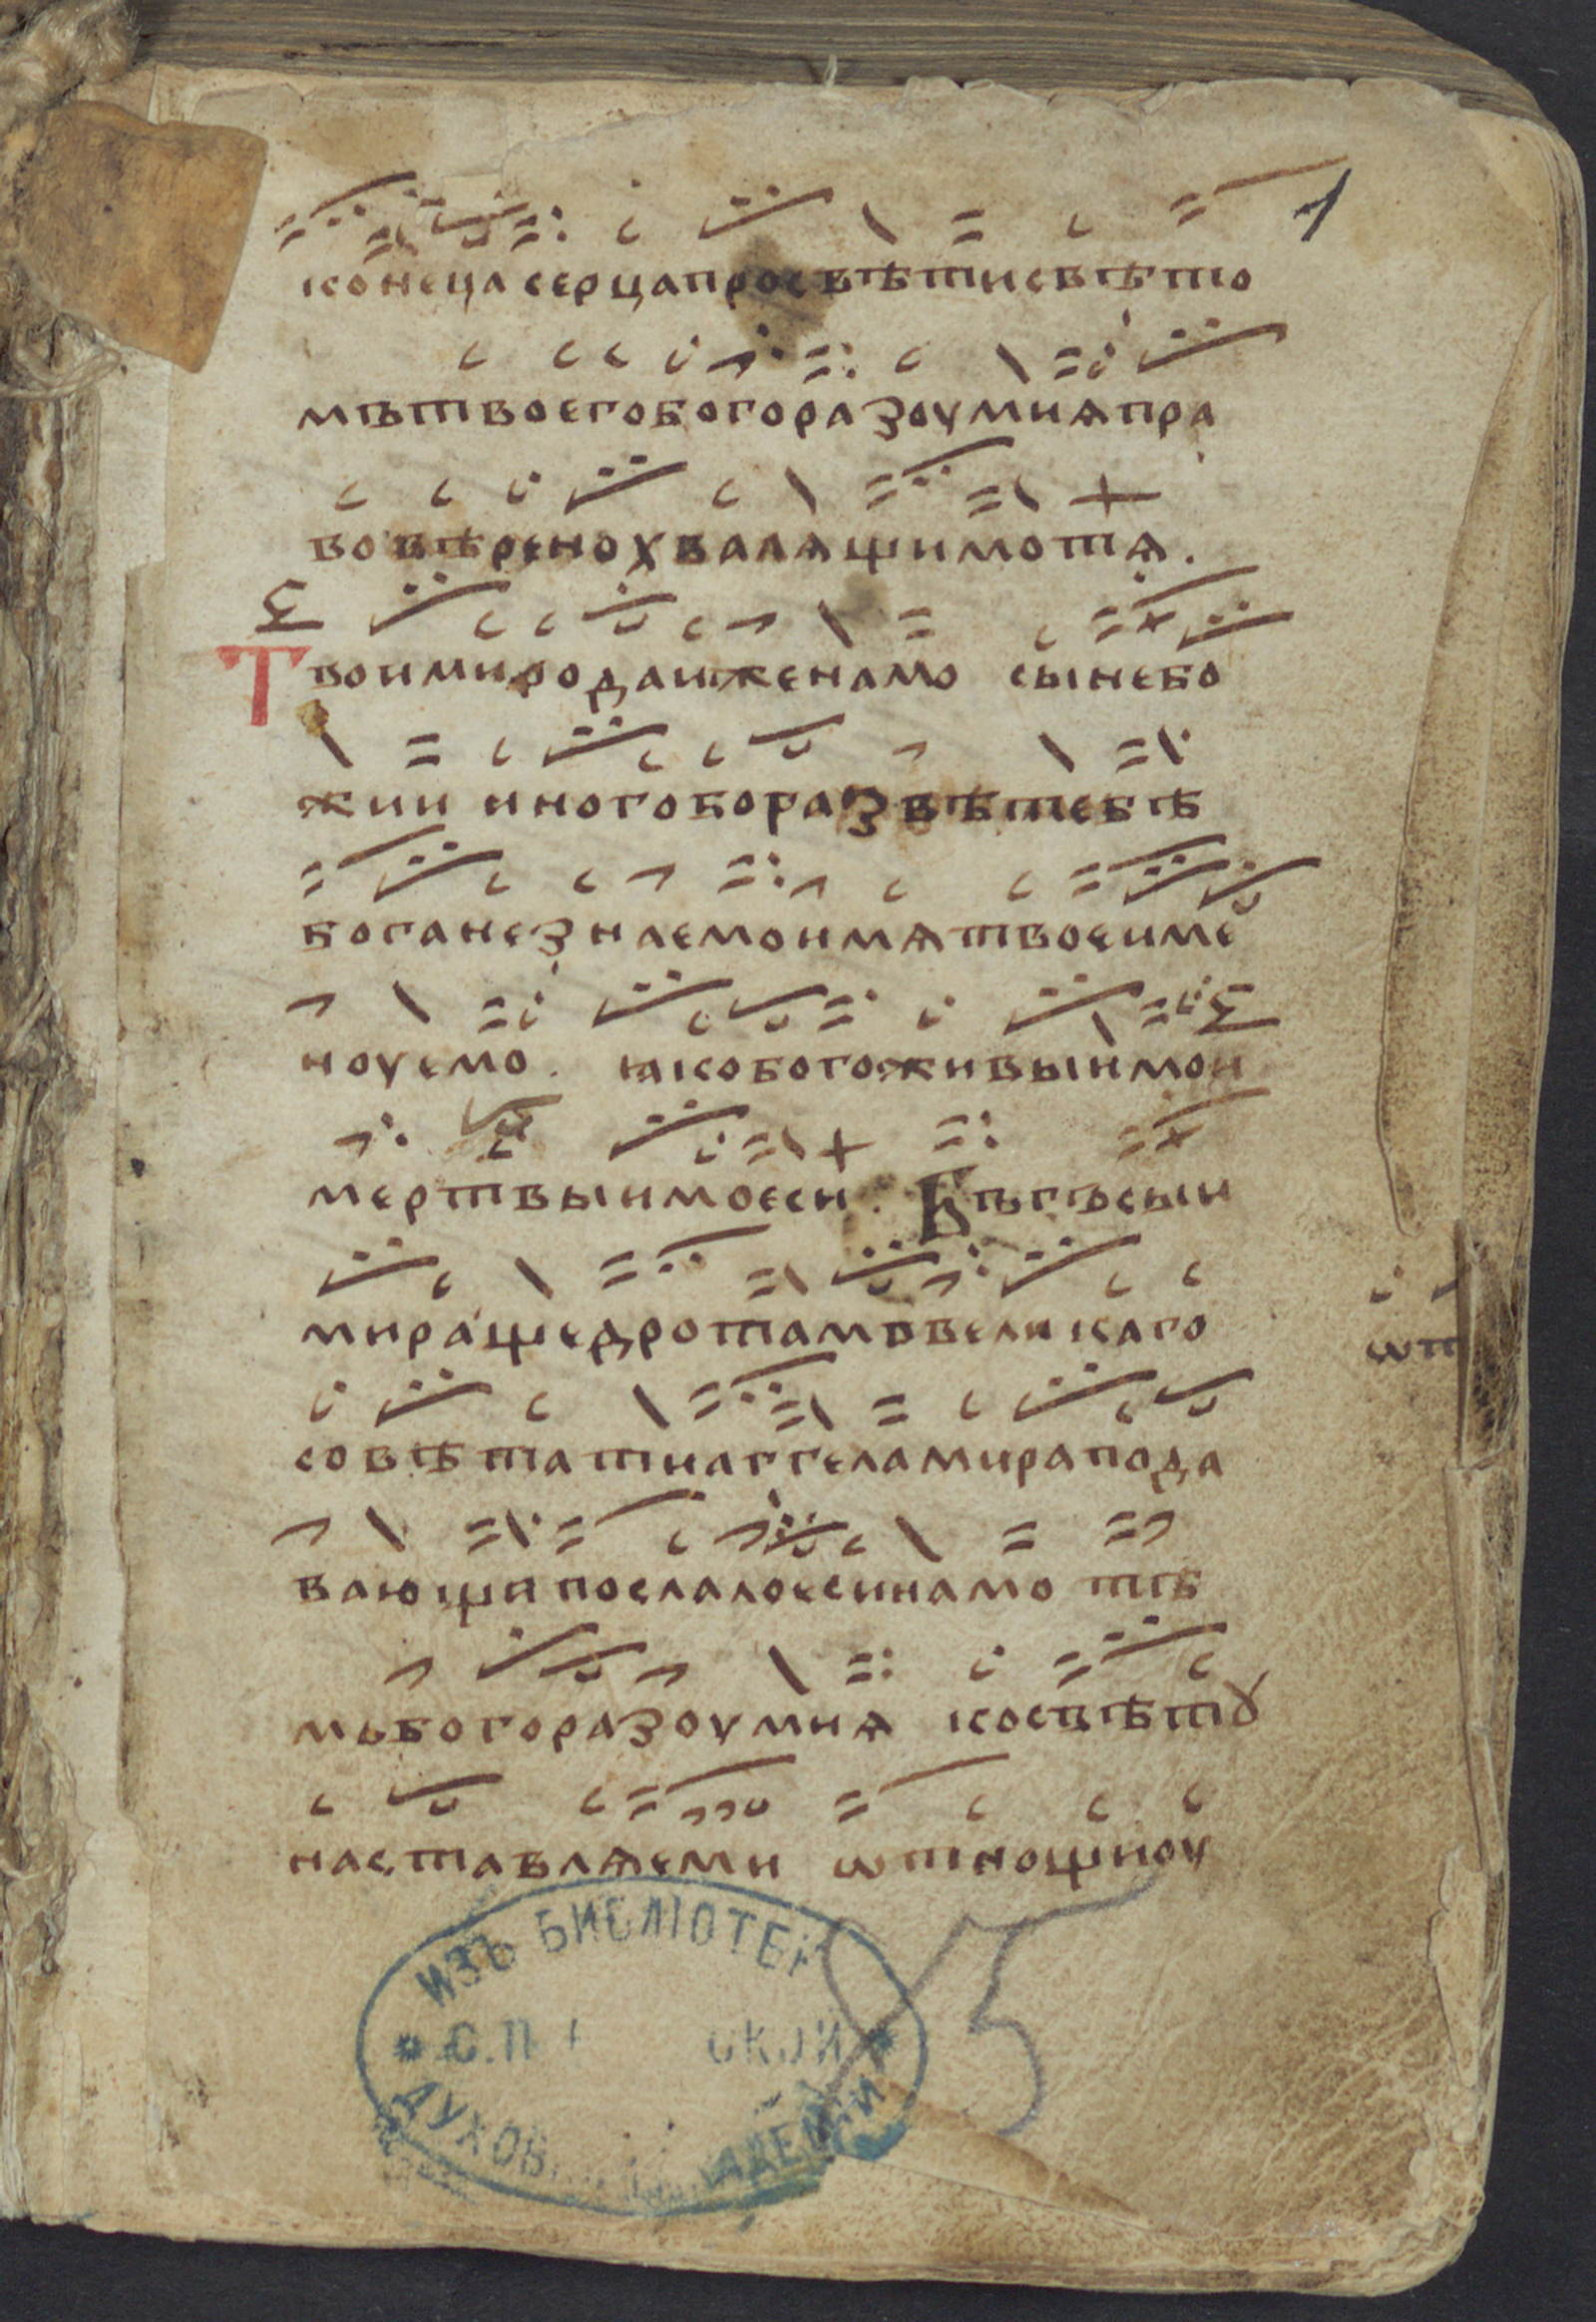 1
конеца серца просвѣти свѣто
мѣ твоего богоразоумиѧ пра
вовѣрено хвалѧщимо тѧ.
Твои миро даиже намо сыне бо
жии иного бо развѣ тебѣ
бога не знаемо имѧ твое име
ноуемо. ꙗко бого живыимо и
мертвыимо еси. Бъгъ сыи
мира щедротамъ великаго
совѣта ти аггела мира пода
вающи послало еси намо тѣ
мь богоразоумиѧ ко свѣтꙋ
наставлѧеми ѡт нощи оу
ѡт
ИЗЪ БИБЛІОТЕК
С.П СКОЙ
ДУХОВ АКАДЕМІИ